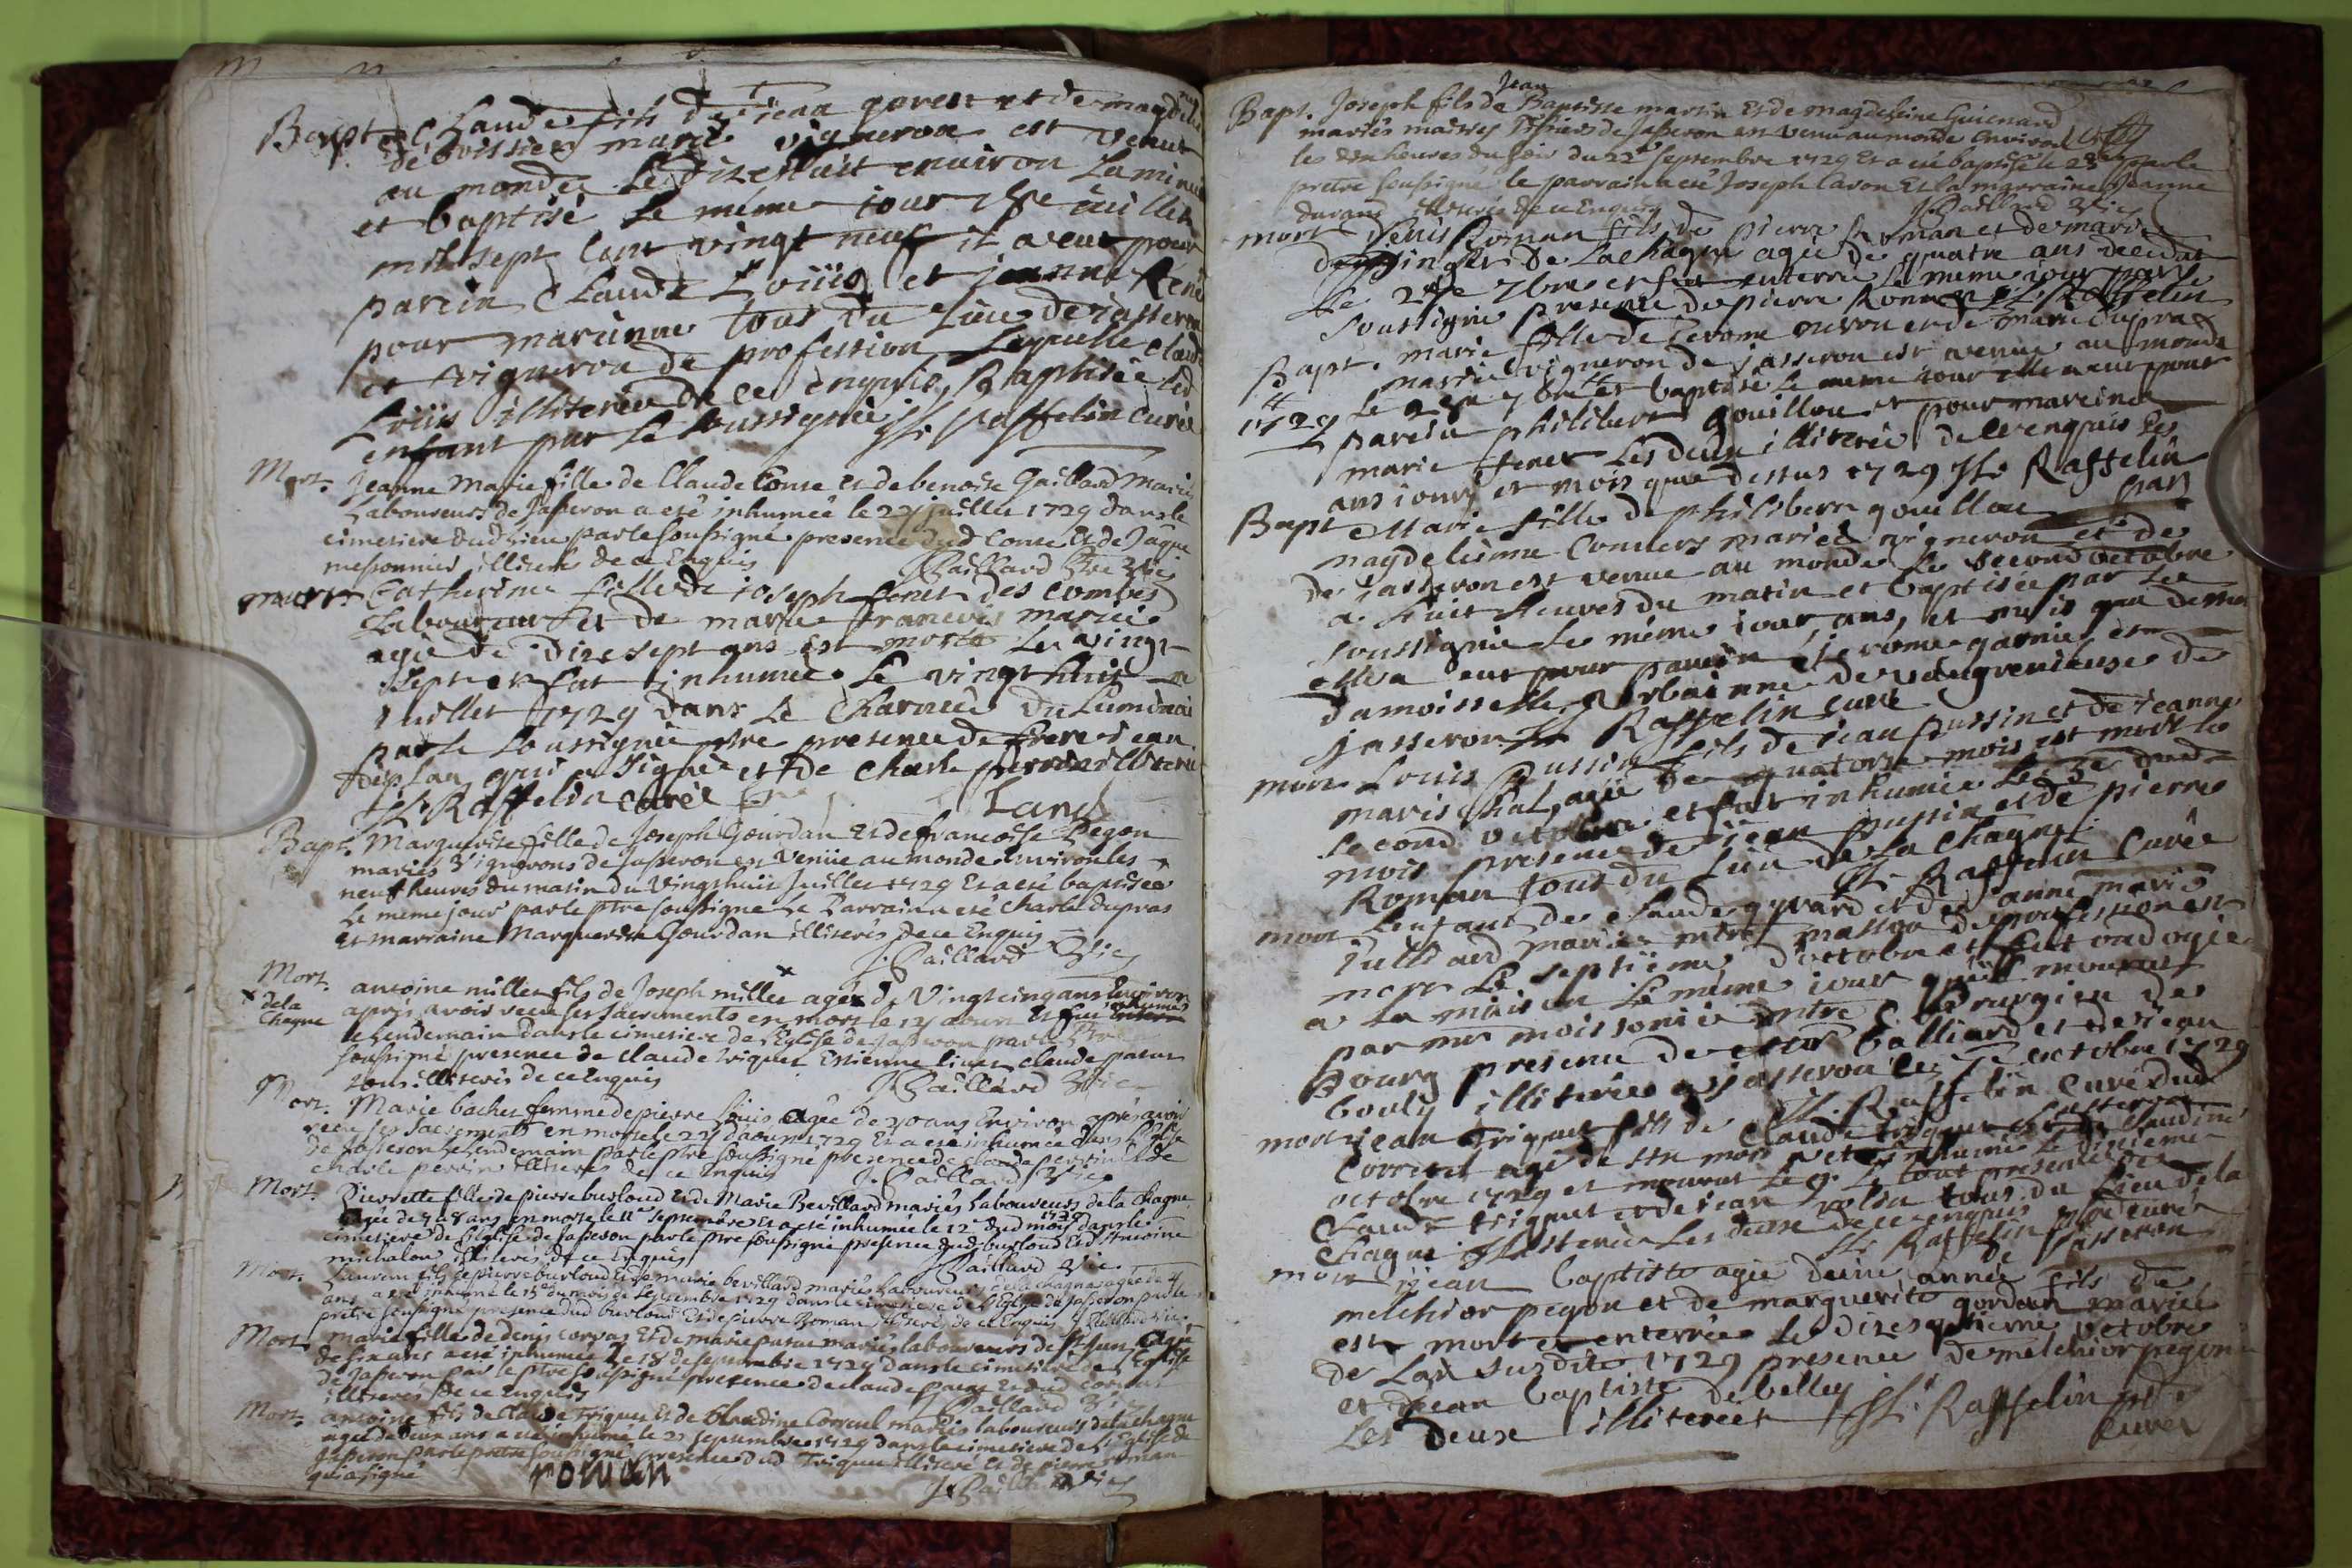 Bapt. Claude fils de jean goret et de magdel
de boissier mariés vigneron est venut
au monde le dixehuit environ la minuit
et baptisé le même jour 18e juillet
mil sept cent vingt neuf il a eut pour
parein Claude Loüis et jeanne René
pour mareinne tous du lieu de jasseron
et vigneron de profession Laquelle claude
Loüis illiterée de ce enquis, Baptisée led
enfant par le soussignée Raffelin curée
Mort. Jeanne Marie fille de Claude Conte et de benoite Gaillard mariés
Laboureurs de Jasseron a eté inhumée le 27 juillet 1729 dans le
cimetiere dud lieu par le soussigné presence dud Conte et de Jaque
messonnier illiterés de ce Enquis J. Paillard Ptre Vic
mort Catherine fille de joseph foret des combes
Laboureur et de marie francois mariée
agée de dixe sept ans est morte le vingt
sept et fut inhumée le vingt huit
juillet 1729 dans le Charnier du Luminaire
par le soussignée ptre presence de frere jean
deplan qui a signée et de charle perrin illiteré
Raffelin curée Land
Bapt. Marguerite fille de Joseph Gourdan Et de francoise Pegon
mariés Vignerons de Jasseron est Venüe au monde environ les
neuf heures du matin du Vingt huit Juillet 1729 Et a eté baptisée
le meme jour par le ptre soussigné Le Parrain a eté Charle dupras
et marraine Marguerite Gourdan illiterés de ce Enquis
J. Paillard Vic
Mort. antoine millet fils de Joseph millet agée de Vingt cinq ans Environ
x de la Chagne
après avoir receu ses sacrements est mort le 17 aoust Et fut inhumé
le lendemain dans le cimetiere de l'Eglise de Jasseron par le Ptre
soussigné presence de claude triquet Estienne claude patut
tous illiterés de ce enquis J. Paillard Vic
Mort. Marie bachet femme de pierre Louis agée de 70 ans Environ après avoir
receu ses sacrements est morte le 27 d'aoust 1729 Et a eté inhumée dans l'Eglise
de Jasseron le lendemain par le ptre soussigné presence de claude perrin et de
charle perrin illiterés de ce enquis J. Paillard Vic
Mort. Pierrette fille de pierre burloud et de Marie Bevillard mariés Laboureurs de la Chagne
agée de 7 a 8 ans est morte le 11e septembre Et a eté inhumée le 12e dud mois 1729 dans le
cimetiere de l'Eglise de Jasseron par le ptre soussigné presence dud burloud Et d'antoine
michalon illiterés de ce Enquis J. Paillard Vic
Mort. Laurent fils de pierre burloud Et de marie bevillard mariés Laboureurs de la chagne agée de 4
ans a eté inhumé le 15e du mois de septembre 1729 dans le cimetiere de l'Eglise de Jasseron par le
prêtre soussigné presence dud burloud Et de pierre Roman illiterés de ce Enquis J. Paillard Vic
Mort. marie fille de denis corvas Et de marie patut mariés laboureurs de st Jun, agée
de six ans a eté inhumée le 18 de septembre 1729 dans le cimetiere de l'Eglise
de Jasseron par le ptre soussigné presence de claude patut Et dud corvas
illiterés de ce enquis J. Paillard Vic
Mort. antoine fils de Claude Triquet Et de Claudine Corrent mariés laboureurs de la chagne
agé de deux ans a eté inhumé le 22 septembre 1729 dans le cimetiere de l'Eglise de
Jasseron par le prêtre soussigné presence dud Triquet illiteré Et de pierre roman
qui a signé roman J. Paillard Vic
Bapt. Joseph fils de Jean Baptiste martin Et de magdeleine Guienard
mariés maitres Tissiers de Jasseron est venu au monde environ
les dix heures du soir du 22e septembre 1729 Et a eté baptisé le 23e par le
pretre soussigné le parrain a eté Joseph Caron Et la marraine Jeanne
durand illiterés de ce Enquis J. Paillard Vic
mort Denis Roman fils de pierre Roman et de marie
de la chagne agée de quatre ans decedat
le 7bre et fut enterré le meme jour par le
soussignée presence de pierre Roman Raffelin
Bapt. marie fille de Jerome ouron et de marie dupra
mariée vigneron de jasseron est venue au monde
4 1729
le 7bre et baptisé le meme jour elle a eut pour
parein philibert gouillon et pour mareinne
marie feret les deux illiterée de ce enquis les
ans jours et mois que dessus 1729 Raffelin
Bapt Marie fille de philiberr gouillou par
magdeleinne Convers mariée vigneron et de
de jasseron est venue au monde le second octobre
a huit heures du matin et baptisée par le
soussignée le même jour, ans, et mois que dessus
elle a eut pour parein Jerome garnier et
damoisselle Urbainne de de
jasseron Raffelin curé
mort Louis Pussin fils de jean pussin et de jeanne
maris chal, agée de quatorze mois est mort le
second octobre et fut inhumée le 3e dud
mois presence de jean pussin et de pierre
Roman tous du lieu de la chagne
Raffelin Curée
mort Lenfant de claude gyvard et de anne marie
juilliard mariée mtre masson de profession est
mort le septiieme d'octobre et fut ondoyée
a la maison le même jour quil mourut
par mr moissonier mtre Chirurgien de
Bourg presence de Galliard et de jean
bouly illiterée a jasseron le 7e octobre 1729
Raffelin Curé dud Jasseron
mort jean triquet fils de Claude triquet et de Claudine
Correnl agé de six mois a eté inhumé le dixieme
octobre 1729 et mourut le 9. le tout presence de
Claude triquet et de jean tous du lieu de la
chagne illiterée Les deux de ce enquis
Raffelin ptre curée de Jasseron
mort jean baptiste agée d'une année fils de
melchior pegon et de marguerite gordan mariée
est mort et enterrée le dixe septieme octobre
de Lan susdite 1729 presence de melchior pegon
et de jean baptiste de belley
Les deux illiterée Raffelin
Curée